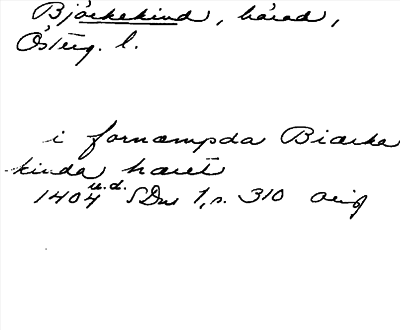 Björkekind, härad,
Österg. l.
i fornæmpda Biærka
kinda hæret
1404 u.d. SDns 1, s. 310 orig